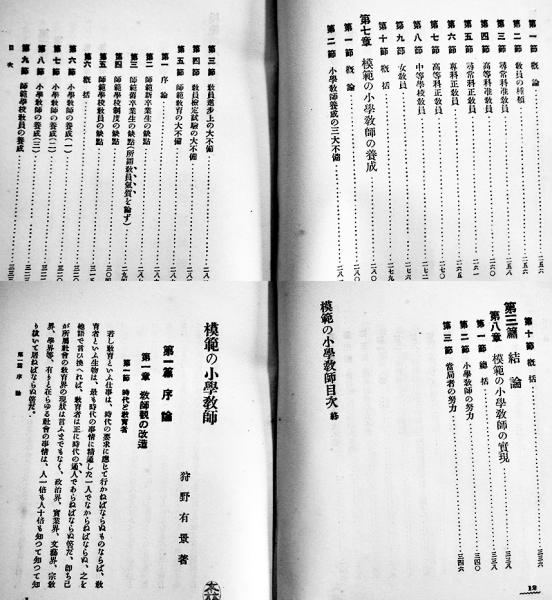 第一節 概論
第二節 教員の種類
第三節 尋常科准教員
第四節 高等科准教員
第五節 尋常科正教員
第六節 専科正教員
第七節 高等科正教員
第八節 中等學校教員
第九節 女教員
第十節 概括
第七章 模範的小學教師の養成
第一節 概論
第二節 小學教師養成の三大不備
第三節 教員進步上の大不備
第四節 教員檢定試驗の大不備
第五節 師範教育の大不備
第一 序論
第二 師範新卒業生の缺點
第三 師範舊卒業生の缺點(所謂教員氣質を論ず)
第四 師範學校制度の缺點
第五 師範學校教員の缺點
第六 概括
第六節 小學教師の養成(一)
第七節 小學教師の養成(二)
第八節 小學教師の養成(三)
第九節 師範學校教員の養成
目次
第十節 概括 三三六
第三篇 結論
第八章 模範的小學教師の實現 三三八
第一節 總括 三三八
第二節 小學教師の努力 三四〇
第三節 當局者の努力 三四六
模範の小學教師目次 終
12
模範の小學教師
狩野有景著
第一篇 序論
第一章 教師觀の改造
第一節 時代と教育者
若し教育といふ仕事は、時代の要求に應じて行かねばならぬものならば、教
育者といふ生物は、最も時代の事情に精通した一人でなからねばならぬ、之を
他語で言ひ換へれば、教育者は正に時代の通人であらねばならぬ筈だ、卽ち己
が所屬社會の教育界の現狀は言ふまでもなく、政治界、實業界、文藝界、宗教
界、學界等、有りと在らゆる社會の事情は、人一倍も人十倍も知つて知つて知
り拔いて居ねばならぬ筈だ。
第一篇 序論